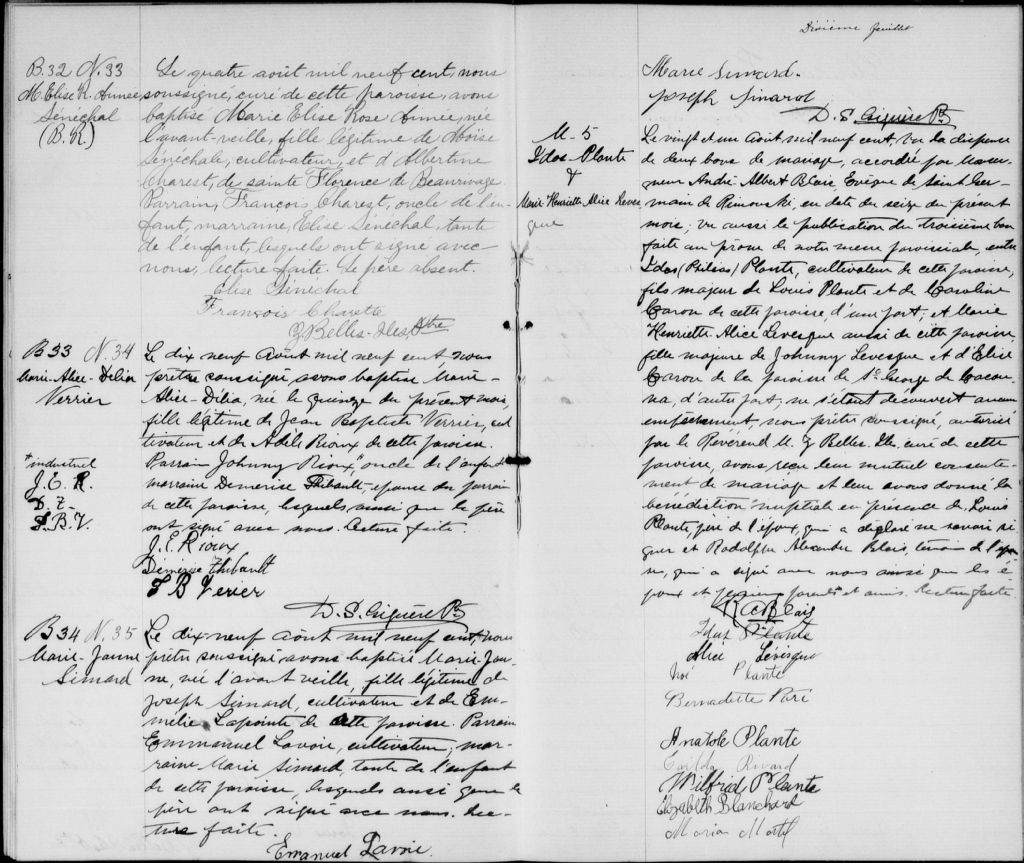 B.32 N.33
M. Elise R. Aimée
Sénéchal
(B.R.)
Le quatre août mil neuf cent, nous
soussigné, curé de cette paroisse, avons
baptisé Marie Elise Rose Aimée, née
l'avant-veille, fille légitime de Moïse
Sénéchale, cultivateur, et d'Albertine
Charest, de sainte Florence de Beaurivage.
Parrain, François Charest, oncle de l'en-
fant, marraine, Elise Sénéchal, tante
de l'enfant, lesquels ont signé avec
nous, lecture faite. Le père absent.
Elise Sénéchal
François Charette
Belles-Iles, Ptre
B33 N.34
Marie-Alice-Délia
Verrier
Le dix neuf Août mil neuf cent, nous
prêtre soussigné, avons baptisé Marie-
Alice-Délia, née le quinze du présent mois,
fille légitime de Jean Baptiste Verrier, cul
tivateur et de Adèle Rioux de cette paroisse.
Parrain Johnny Rioux, oncle de l'enfant
marraine Demerise Thibault, épouse du parrain
de cette paroisse, lesquels, ainsi que le père
ont signé avec nous. Lecture faite.
+ industriel
J.E.R.
D.T.
J.B.V.
J.E. Rioux
Démerise Thibault
J B Verier
D. S. Giguère Ptr
B34 N.35
Marie-Jeanne
Simard
Le dix-neuf Août mil neuf cent, nous
prêtre soussigné avons baptisé Marie-Jean-
ne, née l'avant veille, fille légitime de
Joseph Simard, cultivateur et de Em-
mélie Lapointe de cette paroisse. Parrain
Emmanuel Lavoie, cultivateur; mar-
raine Marie Simard, tante de l'enfant
de cette paroisse, lesquels ainsi que le
père ont signé avec nous. Lec-
ture faite.
Emanuel Lavoie.
Dixième feuillet
Marie Simard.
Joseph Simard
D. S. Giguère Ptr
M-5
Idas Plante
&
Marie Henriette Alice Leves
que
Le vingt et un Août mil neuf cent, Vu la dispense
de deux bans de mariage, accordée par Monsei-
gneur André-Albert Blais, Evêque de Saint Ger-
main de Rimouski, en date du seize du présent
mois; vu aussi la publication du troisième ban
faite au prône de notre messe paroissiale, entre
Idas (Philias) Plante, cultivateur de cette paroisse,
fils majeur de Louis Plante et de Caroline
Caron de cette paroisse, d'une part; et Marie
Henriette Alice Levesque aussi de cette paroisse,
fille majeure de Johnny Levesque et d'Elise
Caron de la paroisse de St George de Cacou-
na, d'autre part; ne s'étant découvert aucun
empêchement, nous prêtre soussigné, autorisé
par le Révérend M. Belles-Iles, curé de cette
paroisse, avons reçu leur mutuel consente-
ment de mariage et leur avons donné la
bénédiction nuptiale en présence de Louis
Plante, père de l'époux, qui a déclaré ne savoir si
gner et Rodolphe Alexandre Blais, témoin de l'épou
se, qui a signé avec nous ainsi que les é-
poux et plusieurs parents et amis. Lecture faite.
R A Blais
Idas Plante
Alice Lévesque
Plante
Bernadette Paré
Anatole Plante
Rivard
Wilfrid Plante
Elizabeth Blanchard
Maria Martel